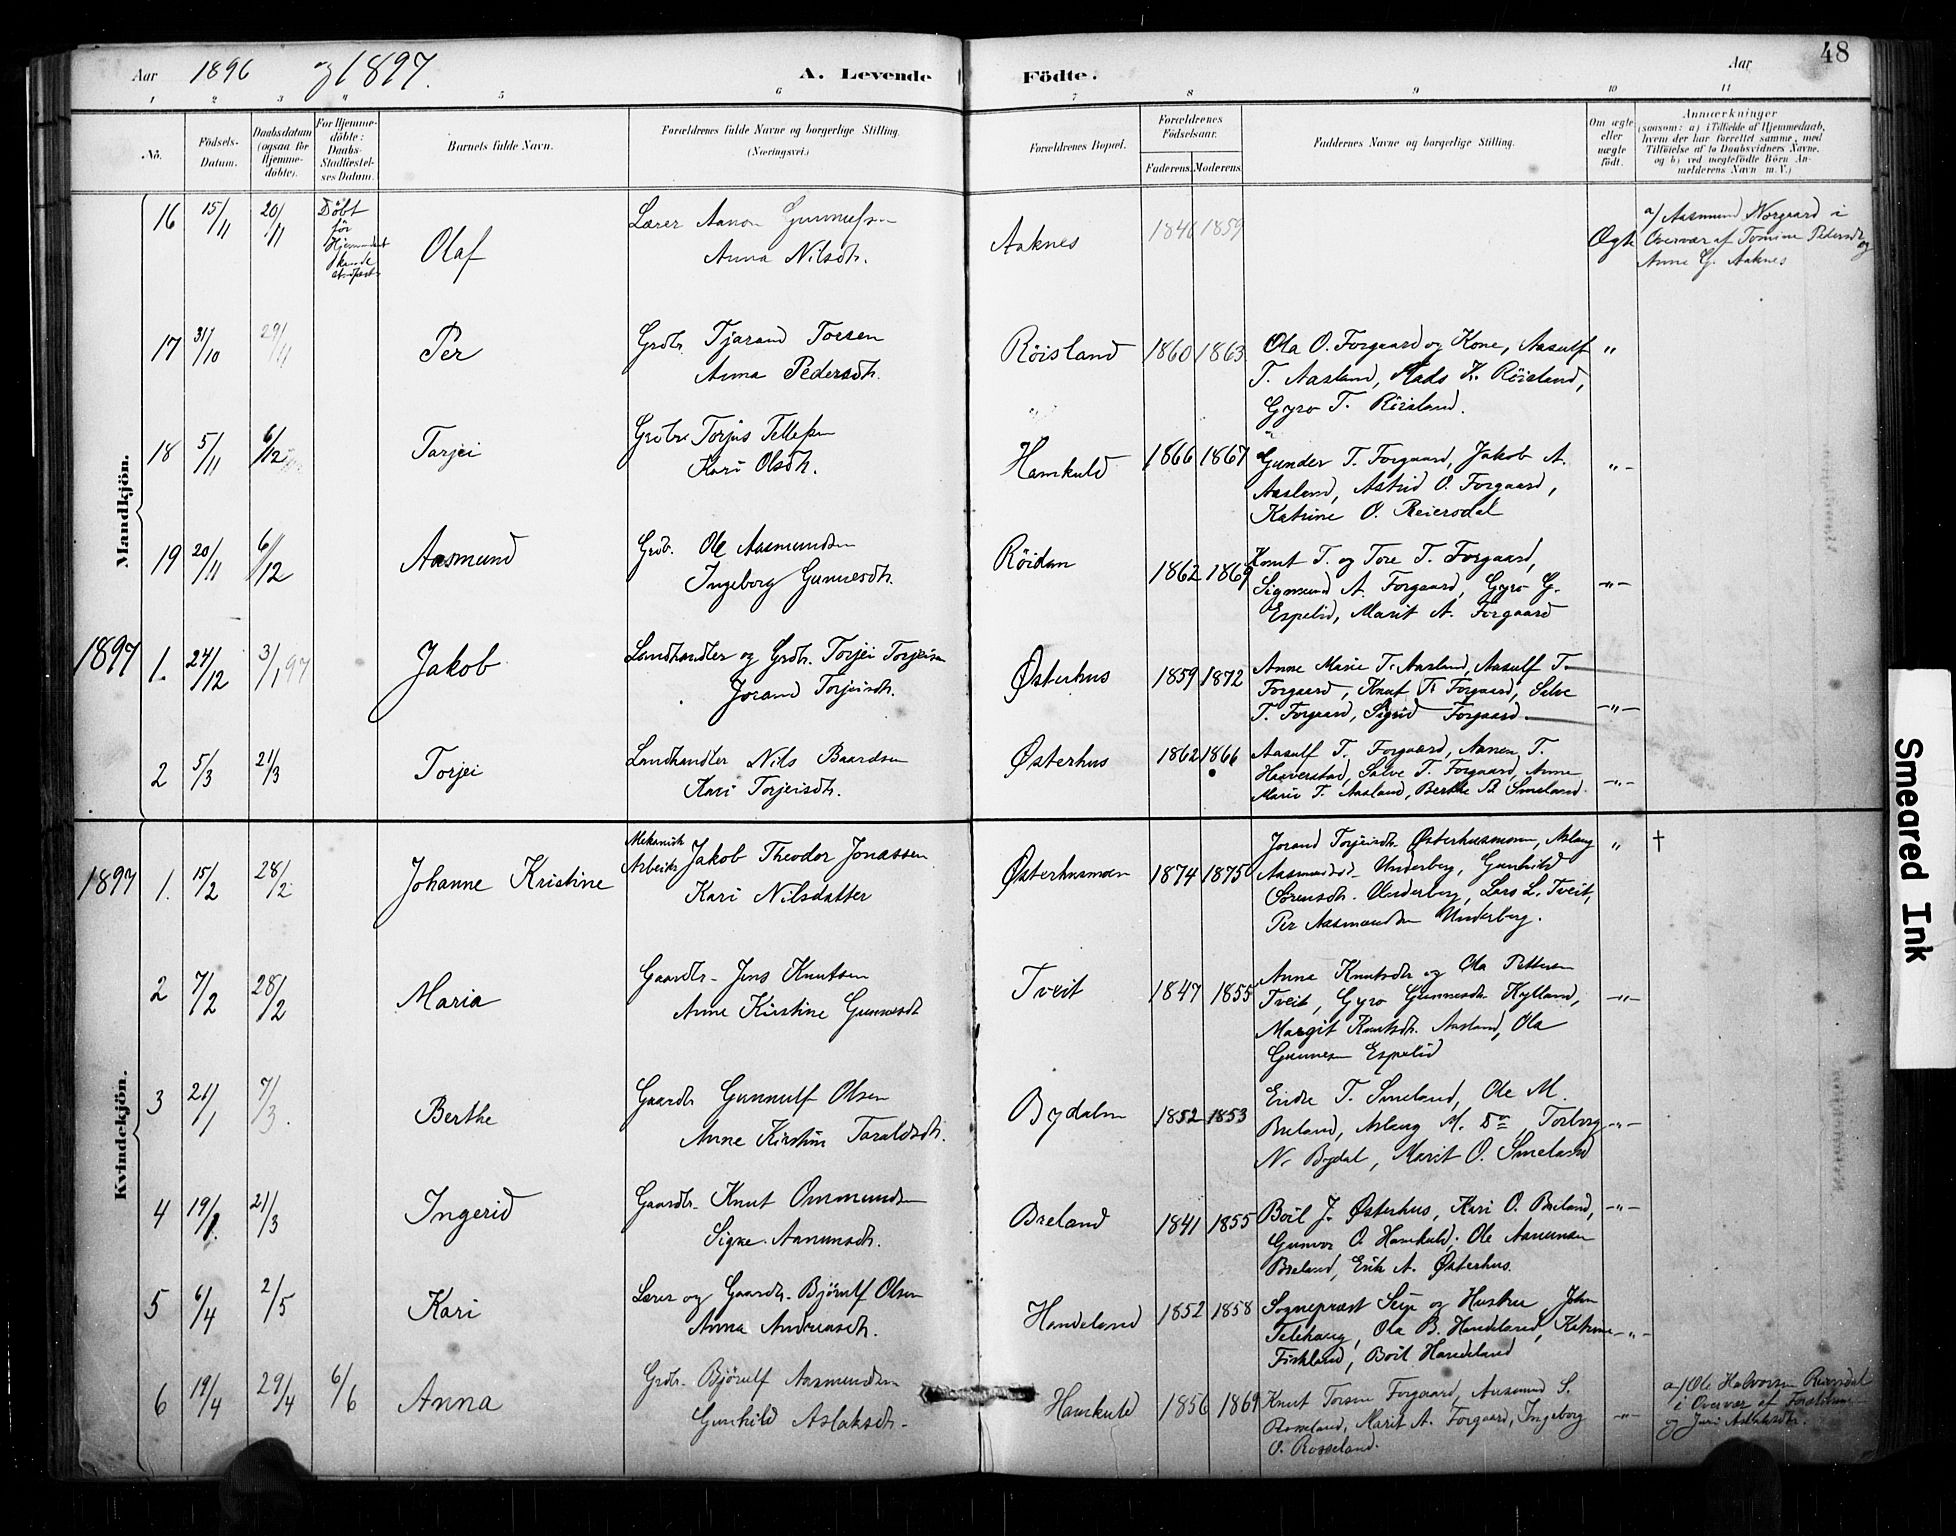 Aar 1896 og 1897.
A. Levende Födte.
Aar 48
1 2 3 4 5 6 7 8 9 10 11
No.
Födsels-Datum.
Daabsdatum (ogsaa for Hjemmedöbte).
For Hjemmedöbte: Daabs-Stadfæstelses Datum.
Barnets fulde Navn.
Forældrenes fulde Navne og borgerlige Stilling. (Næringsvei.)
Forældrenes Bopæl.
Forældrenes Födselsaar.
Faderens. Moderens.
Faddernes Navne og borgerlige Stilling.
Om ægte eller uægte födt.
Anmærkninger
(saasom: a) i Tilfælde af Hjemmedaab, hvem der har forrettet samme, med Tilföielse af to Daabsvidners Navne, og b) ved uægtefödte Börn Anmelderens Navn m. V.)
Mandkjön.
16 15/11 20/11 Døbt før Olaf
Lærer Aanon Gunnufsen
Anna Nilsdtr.
Aaknes 1846 1859 Ægte
a/ Aasmund Norgaard i
Overvær af Tomine Pedersdtr og
Anne G. Aaknes
17 31/10 29/11 Per
Grdbr. Tjarand Torsen
Anna Pedersdtr.
Röisland 1860 1863
Ola O. Forgaard og Kone, Aasulf "
T. Aasland, Mads K. Röisland,
Gyro T. Röisland.
18 5/11 6/12 Torjei
Grdbr. Torjus Tellefsen
Kari Olsdtr.
Hamkuld 1866 1867
Gunder T. Forgaard, Jakob A.
Aasland, Astrid O. Forgaard, "
Katrine O. Reiersdal
19 20/11 6/12 Aasmund
Grdb. Ole Aasmundsen
Ingeborg Gunnesdtr.
Röidan 1862 1869
Knut T. og Tore T. Forgaard,
Sigmund A. Forgaard, Gyro G. "
Espelid, Marit A. Forgaard
1897 1. 24/12 3/1 97 Jakob
Landhandler og Grdbr. Torjei Torjeisen
Jorand Torjeisdtr.
Østerhus 1859 1872
Anne Marie T. Aasland, Aasulf T.
Forgaard, Knut T. Forgaard, Salve "
T. Forgaard, Sigrid Forgaard.
2 5/3 21/3 Torjei
Landhandler Nils Baardsen
Kari Torjeisdtr.
Østerhus 1862 1866
Aasulf T. Forgaard, Aanen T.
Haaverstad, Salve T. Forgaard, Anne "
Marie T. Aasland, Berthe B. Smeland.
Kvindekjön.
1897 1. 15/2 28/2 Johanne Kristine
Mekanisk Arbeider Jakob Theodor Jonassen
Kari Nilsdatter
Østerhusmoen 1874 1875
Jorand Torjeisdtr. Østerhusmoen, Aslaug " †
Aasmundsd. Underberg, Gunhild
Sørensdtr. Underberg, Lars L. Tveit,
Per Aasmundsen Underberg.
2 7/2 28/2 Maria
Gaardbr. Jens Knutsen
Anne Kirstine Gunnesdt
Tveit 1847 1855
Anne Knutsdtr og Ola Pettersen
Tveit, Gyro Gunnesdtr Kylland, "
Margit Knutsdtr. Aasland, Ola
Gunnesen Espelid
3 21/1 7/3. Berthe
Gaardbr Gunnulf Olsen
Anne Kirstine Taraldsdtr.
Bydalen 1852 1853
Endre T. Smeland, Ole M.
Breland, Aslaug M. Do, Torborg "
N. Bydal, Marit O. Smeland
4 19/1. 21/3 Ingerid
Gaardbr. Knut Ommundsen
Signe Aanunsdtr.
Breland 1841 1855
Boil J. Østerhus, Kari O. Breland, "
Gunvor O. Hamkuld, Ole Aanunsen
Breland, Erik A. Østerhus.
5 6/4 2/5 Kari
Lærer og Gaardbr. Bjørulf Olsen
Anna Andreasdtr.
Handeland 1852 1858
Sogneprest Seip og Hustru, John
Telehaug, Ola B. Handeland, Katrine "
Fiskland, Boil Handeland
6 19/4 29/4 6/6 Anna
Grdbr. Bjørulf Aasmundsen
Gunhild Aslaksdtr.
Hamkuld 1856 1869
Knut Torsen Forgaard, Aasmund S.
Rosseland, Marit A. Forgaard, Ingeborg "
O. Rosseland.
a/ Ole Halvorsen Reiersdal
i Overvær af Forældrene
og Juri Aslaksdtr.
Smeared Ink